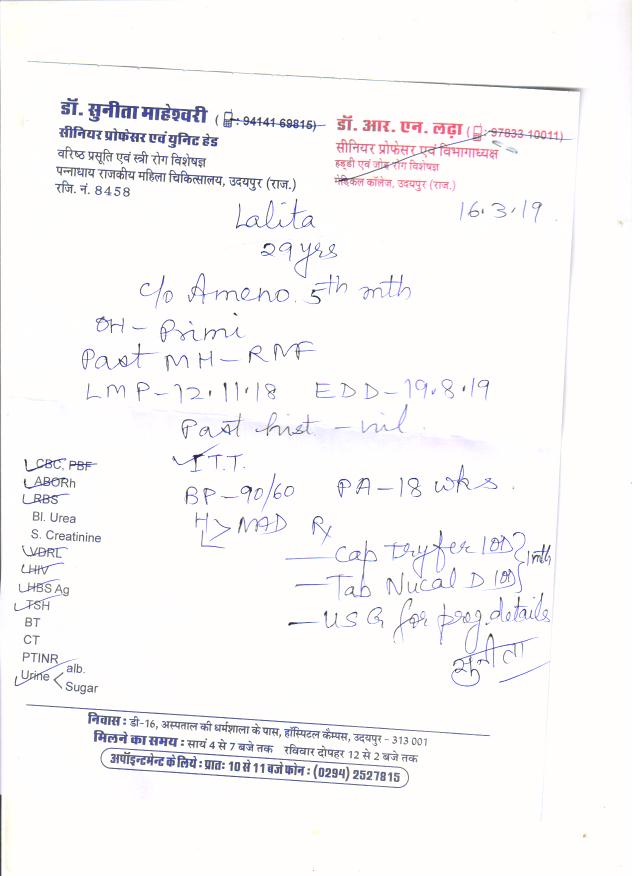 डॉ. सुनीता माहेश्वरी (📱: 94141 69815)
सीनियर प्रोफेसर एवं युनिट हेड
वरिष्ठ प्रसूति एवं स्त्री रोग विशेषज्ञ
पन्नाधाय राजकीय महिला चिकित्सालय, उदयपुर (राज.)
रजि. नं. 8458
डॉ. आर. एन. लढ़ा (📱: 97833 10011)
सीनियर प्रोफेसर एवं विभागाध्यक्ष
हड्डी एवं जोड़ रोग विशेषज्ञ
मेडिकल कॉलेज, उदयपुर (राज.)
16.3.19
Lalita
29 yrs
c/o Ameno. 5th mth
OH - Primi
Past MH - RMF
LMP - 12.11.18 EDD - 19.8.19
Past hist. - nil.
I T.T.
BP - 90/60 PA - 18 wks.
H > NAD Rx
L
- Cap Tryfer 1 OD } 1 mth
- Tab Nucal D 1 OD }
- USG for preg. details
सुनीता
CBC, PBF
ABORh
RBS
Bl. Urea
S. Creatinine
VDRL
HIV
HBS Ag
TSH
BT
CT
PTINR
Urine < alb.
Sugar
निवास : डी-16, अस्पताल की धर्मशाला के पास, हॉस्पिटल कैम्पस, उदयपुर - 313 001
मिलने का समय : सायं 4 से 7 बजे तक रविवार दोपहर 12 से 2 बजे तक
अपॉइन्टमेन्ट के लिये : प्रातः 10 से 11 बजे फोन : (0294) 2527815